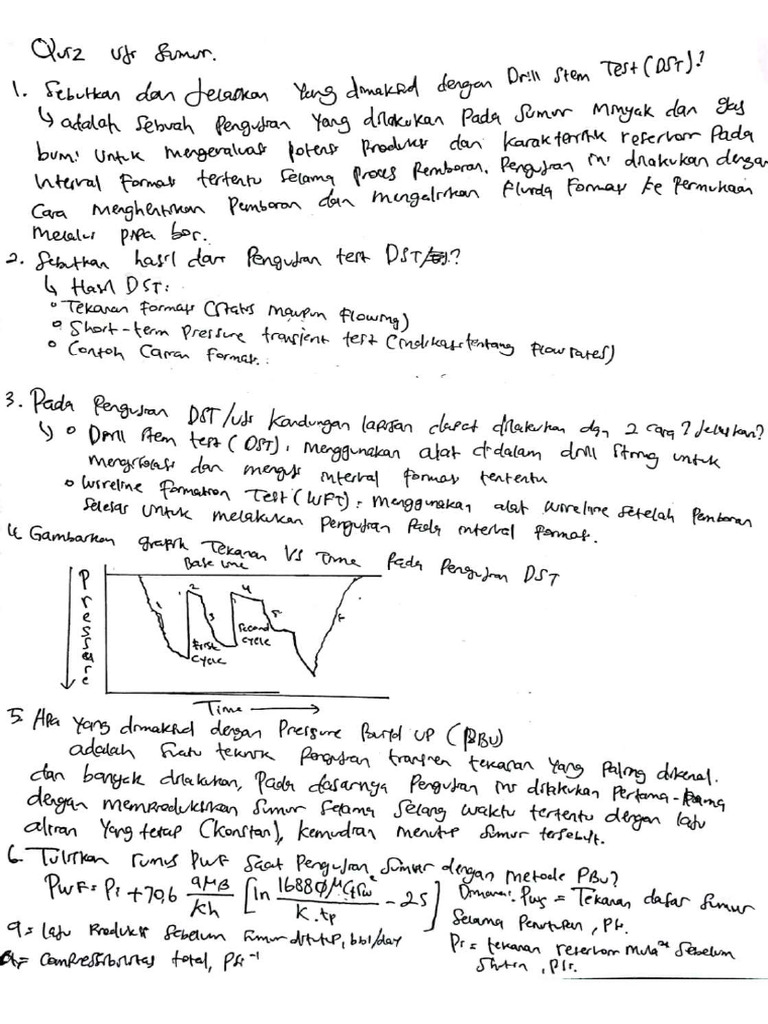 Quiz Uji Sumur.
1. Sebutkan dan Jelaskan Yang dimaksud dengan Drill Stem Test (DST)?
↳ adalah Sebuah Pengujian Yang dilakukan Pada Sumur Minyak dan gas
bumi Untuk mengevaluasi potensi Produksi dan karakteristik reservoir Pada
Interval Formasi tertentu Selama Proses Pemboran. Pengujian ini dilakukan dengan
Cara Menghentikan Pemboran dan mengalirkan Fluida Formasi ke Permukaan
Melalui pipa bor.
2. Sebutkan hasil dari Pengujian test DST/ ?
↳ Hasil DST:
° Tekanan Formasi (Statis maupun flowing)
° Short-term Pressure transient test (indikasi tentang flow rates)
° Contoh Cairan Formasi.
3. Pada Pengujian DST/uji kandungan lapisan dapat dilakukan dgn 2 cara? Jelaskan?
↳ ° Drill Stem test (DST), menggunakan alat di dalam drill string untuk
mengisolasi dan menguji interval formasi tertentu
° Wireline Formation Test (WFT), menggunakan alat wireline setelah Pemboran
Selesai Untuk melakukan Pengujian Pada interval formasi.
4. Gambarkan grafik Tekanan VS Time Pada Pengujian DST
Base line
Pressure
1
2
3
4
5
First
cycle
Second
cycle
Time
5. Apa Yang dimaksud dengan Pressure Build UP (PBU)
adalah Suatu teknik Pengujian transien tekanan Yang Paling dikenal.
dan banyak dilakukan, Pada dasarnya Pengujian ini dilakukan Pertama-
dengan memproduksikan Sumur Selama Selang waktu tertentu dengan laju
aliran Yang tetap (konstan), kemudian menutup Sumur tersebut.
6. Tuliskan rumus PWF Saat Pengujian Sumur dengan metode PBU?
PWF = Pi + 70,6 qμB/kh [ln 1688 ϕμCtrw²/K.tp - 2S]
Dimana: Pws = Tekanan dasar Sumur
Selama Penutupan, Psi.
q = laju Produksi Sebelum Sumur ditutup, bbl/day
Pi = tekanan reservoir mula² Sebelum
Shutin, Psi.
Ct = Compressibilitas total, Psi⁻¹